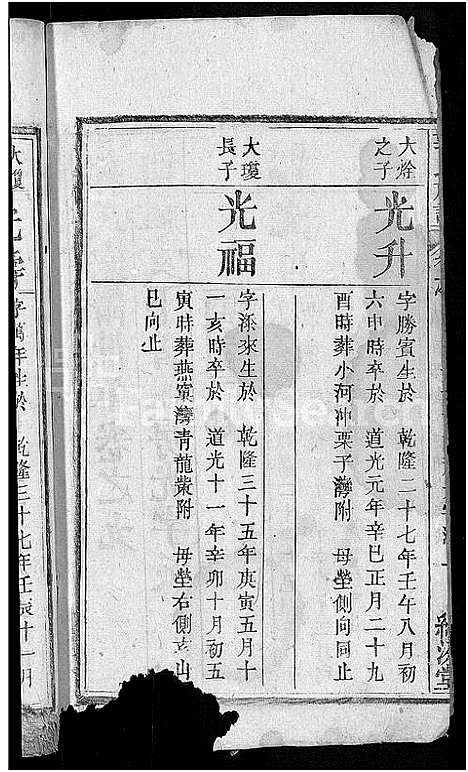 大烇
之子
光升
字勝賓生於 乾隆二十七年壬午八月初
六申時卒於 道光元年辛巳正月二十九
酉時葬小河冲栗子灣附 母塋側向同止
大瓊
長子
光福
字添來生於 乾隆三十五年庚寅五月十
一亥時卒於 道光十一年辛卯十月初五
寅時葬燕窠灣青龍嘴附 母塋右側亥山
巳向止
大瓊
字萬年生於 乾隆三十七年壬辰十一月